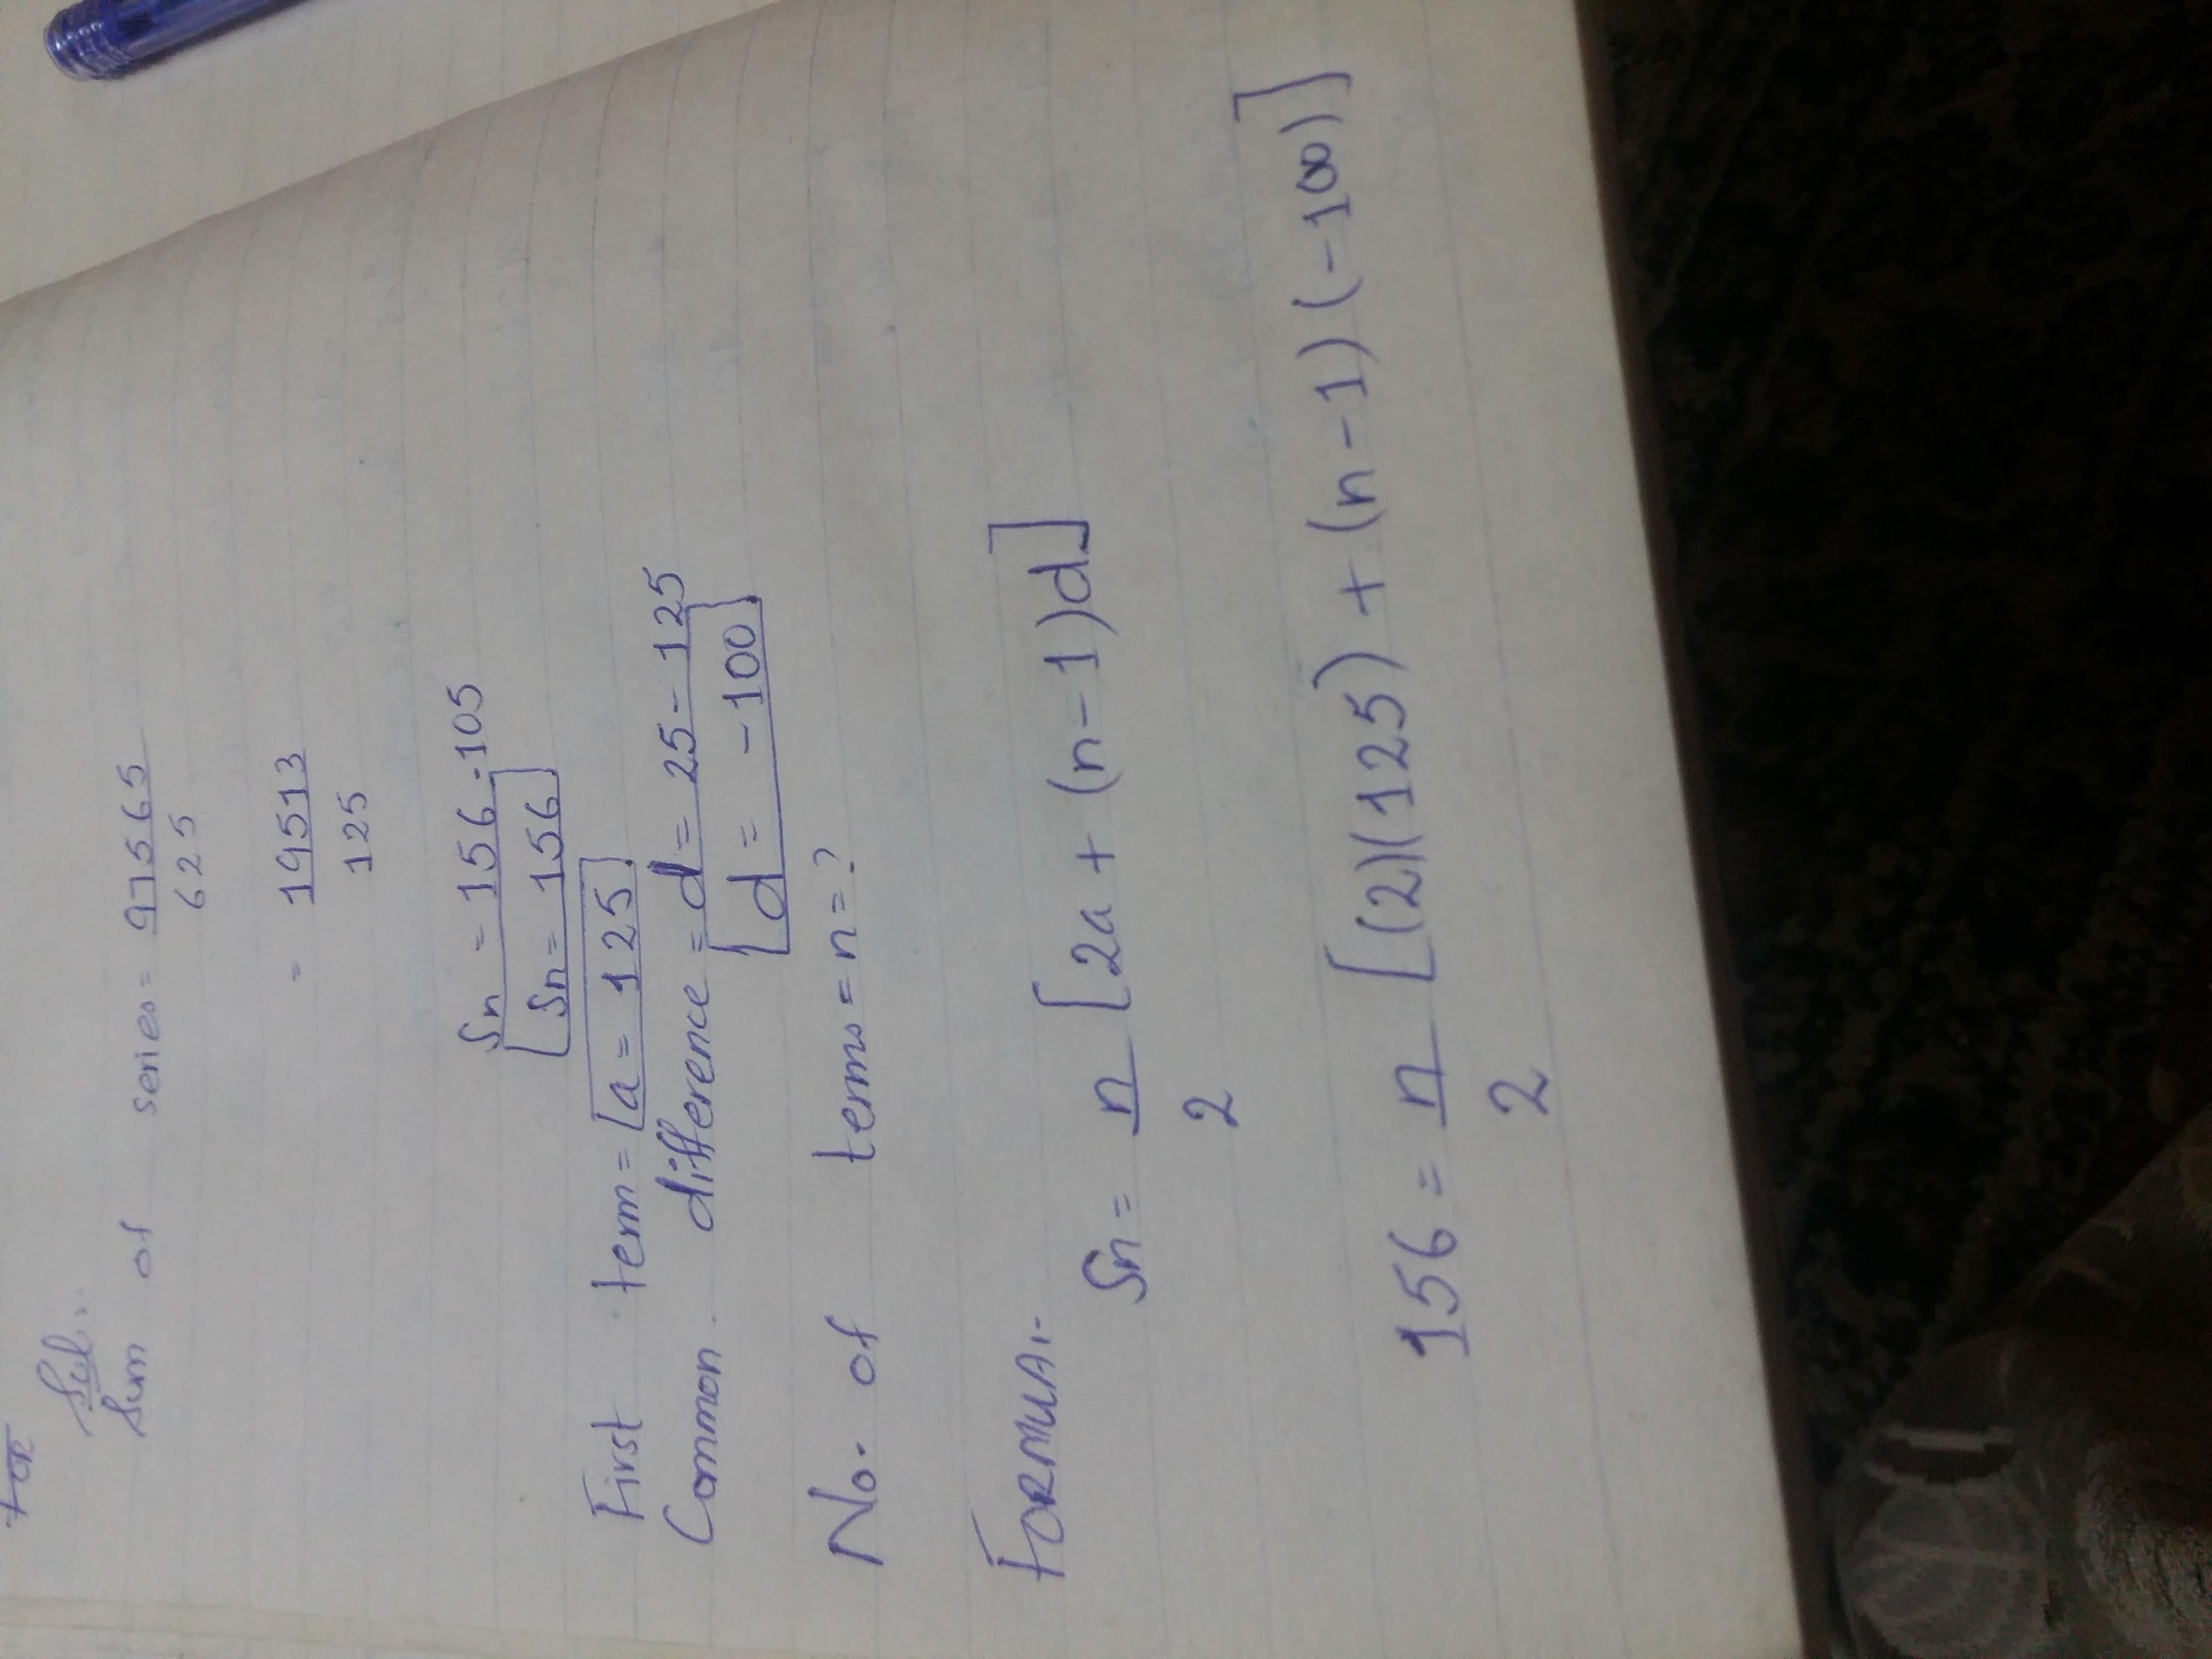 Sol:-
Sum of series = 97565
625
= 19513
125
Sn = 156.105
Sn = 156
First term = a = 125
Common difference = d = 25 - 125
d = -100
No. of terms = n = ?
FORMULA:-
Sn = n [2a + (n-1)d]
2
156 = n [(2)(125) + (n-1)(-100)]
2